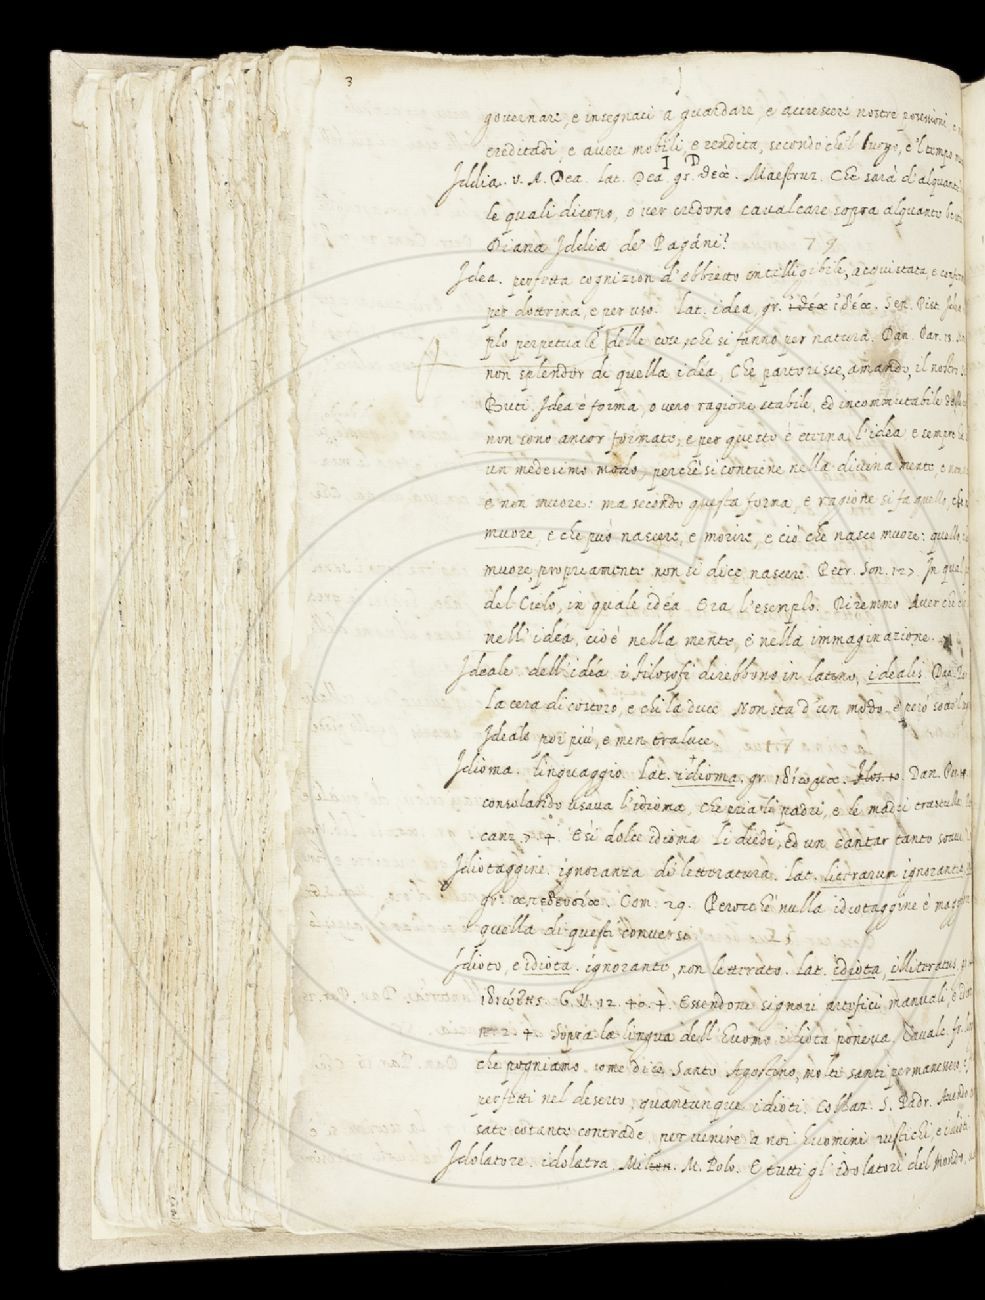 3
J
governare, e insegnaci a guardare, e accrescere nostre possessioni, e
ereditadi, e avere mobili, e rendita, secondo che 'l luogo, e 'l tempo
I D
Jddia. V. A. Dea. lat. Dea gr. θεὰ. Maestruz. Che sarà d'alquante
le quali dicono, o ver credono cavalcare sopra alquante bestie
Diana Jddia de' Pagani? 7 9
Jdea. perfetta cognizion d'obbietto intelligibile, acquistata, e
per dottrina, e per uso. lat. idea, gr. ἰδέα ἰδέα. Sen. Pist. Jdea
plo perpetuale delle cose, che si fanno per natura. Dan. Par. 13.
non splendor di quella idéa, Che partorisce, amando, il nostro
Buti. Jdea è forma, o vero ragione stabile, ed incommutabile delle
non sono ancor formate, e per questo è eterna l'idea e sempre
un medesimo modo, perchè si contiene nella divina mente, e non
e non muore: ma secondo questa forma, e ragione si fa quello, che
muore, e che può nascere, e morire, e ciò che nasce muore: quello
muore, propriamente non si dice nascere. Petr. Son. 127 In qual
del Cielo, in quale idéa Era l'esemplo. Diremmo Aver che
nell'idéa, cioè nella mente, e nella immaginazione.
Jdeale. dell'idéa i filosofi direbbono in latino, idealis Dan.
La cera di costoro, e chi la duce Non sta d'un modo, e però sotto 'l
Jdeale poi più, e men traluce.
Jdioma. linguaggio. lat. idioma. gr. ἰδίωμα. Dan. Par.
consolando usava l'idioma, Che pria li padri, e le madri trastulla.
canz. 7. 4. E sì dolce idioma Le diedi, ed un cantar tanto soave
Jdiotaggine. ignoranza di letteratura. lat. litterarum ignorantia
gr. ἀπαιδευσία. Com. 29. Perocchè nulla idiotaggine è maggior
quella di questi conversi
Jdioto, e idiota. ignorante, non letterato. lat. idiota, illiteratus,
ἰδιώτης. G. V. 12. 40. 4. Essendone signori artefici manuali, e
n. 2. 4. Sopra la lingua dell'huomo idiota poneva. Cavalc.
che pogniamo, come dice Santo Agostino, molti santi permanessero,
perfetti nel deserto, quantunque idioti. Collaz. S. Padr. Avendo
sate cotante contrade, per venire a noi huomini rustichi, e idioti
Jdolatore. idolatra, Milion. M. Polo. E tutti gl'idolatori del mondo,